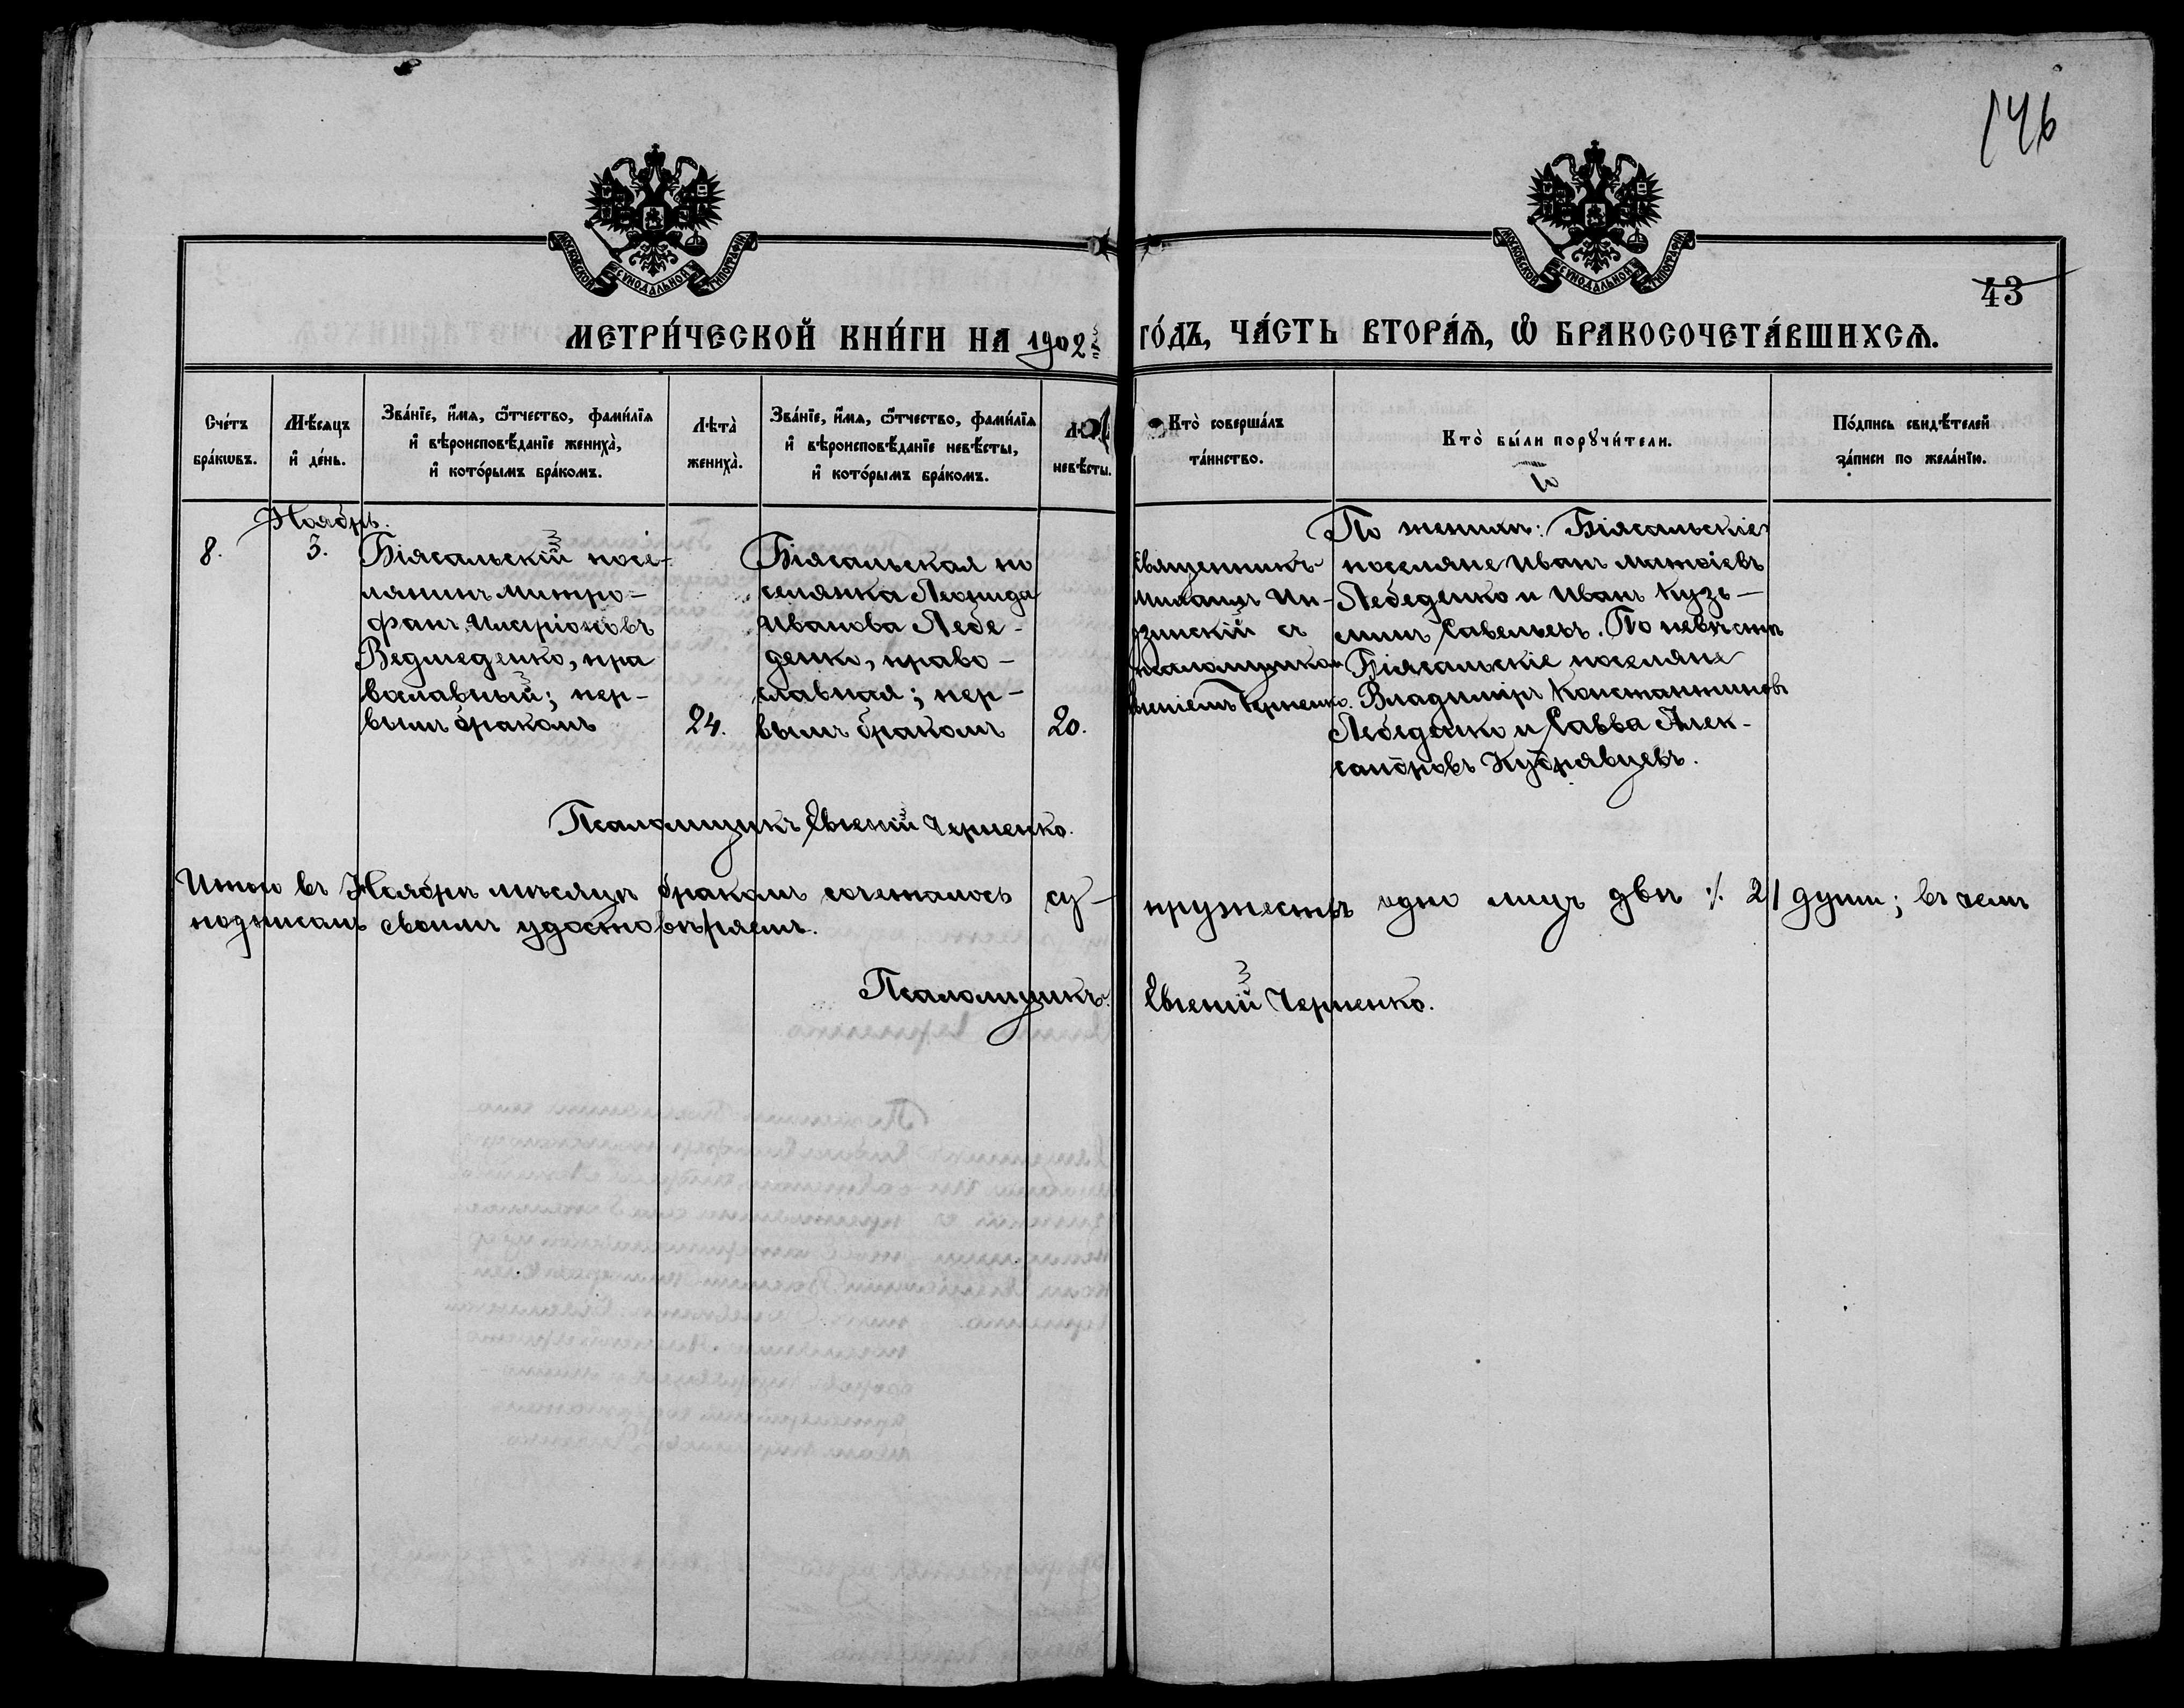 146
МОСКОВСКОЙ СѴНОДАЛЬНОЙ ТИПОГРАФІИ
МОСКОВСКОЙ СѴНОДАЛЬНОЙ ТИПОГРАФІИ
43
МЕТРИ́ЧЕСКОЙ КНИ́ГИ НА 1902й ГО́ДЪ, ЧА́СТЬ ВТОРА́Ѧ, Ѡ҆ БРАКОСОЧЕТА́ВШИХСѦ.
Сче́тъ
бра́кѡвъ.
Мѣ́сѧцъ
и҆ де́нь.
Зва́нїе, и҆́мѧ, ѻ҆́тчество, фами́лїѧ
и҆ вѣроисповѣ́данїе жениха̀,
и҆ кото́рымъ бра́комъ.
Лѣта̀
жениха̀.
Зва́нїе, и҆́мѧ, ѻ҆́тчество, фами́лїѧ
и҆ вѣроисповѣ́данїе невѣ́сты,
и҆ кото́рымъ бра́комъ.
невѣ́сты.
Кто̀ соверша́лъ
та́инство.
Кто̀ бы́ли порꙋчи́тели.
По́дпись свидѣ́телей
за́писи по жела́нїю.
Ноябрь.
8.
3.
Біясальскій посе-
лянинъ Митро-
фанъ Иларіоновъ
Ведмеденко, пра
вославный; пер-
вымъ бракомъ
24.
Біясальская по
селянка Леонида
Иванова Лебе-
денко, право-
славная; пер-
вымъ бракомъ
20.
Священникъ
Михаилъ Ин-
зинскій съ
псаломщикомъ
Евгеніемъ Черненко.
По женихѣ: Біясальскіе
поселяне Иванъ Матѳіевъ
Лебеденко и Иванъ Кузь-
минъ Савельевъ. По невѣстѣ
Біясальскіе поселяне
Владиміръ Константиновъ
Лебеденко и Савва Алек-
сандровъ Кудрявцевъ.
Псаломщикъ Евгеній Черненко.
Итого въ Ноябрѣ мѣсяцѣ бракомъ сочеталось су-пружествъ одно лицъ двѣ ⁒ 2/ души; въ чемъ
подписомъ своимъ удостовѣряемъ.
Псаломщикъ Евгеній Черненко.